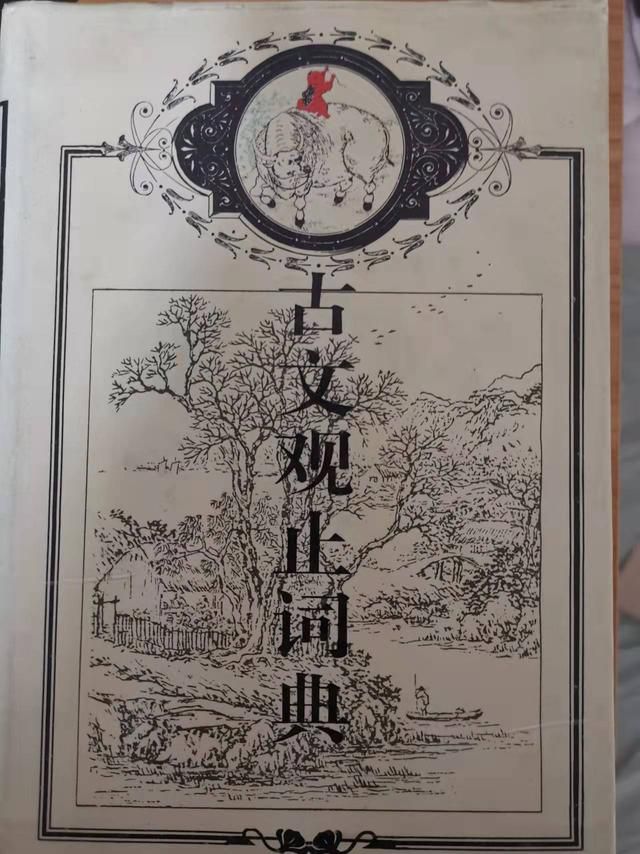 古文观止词典